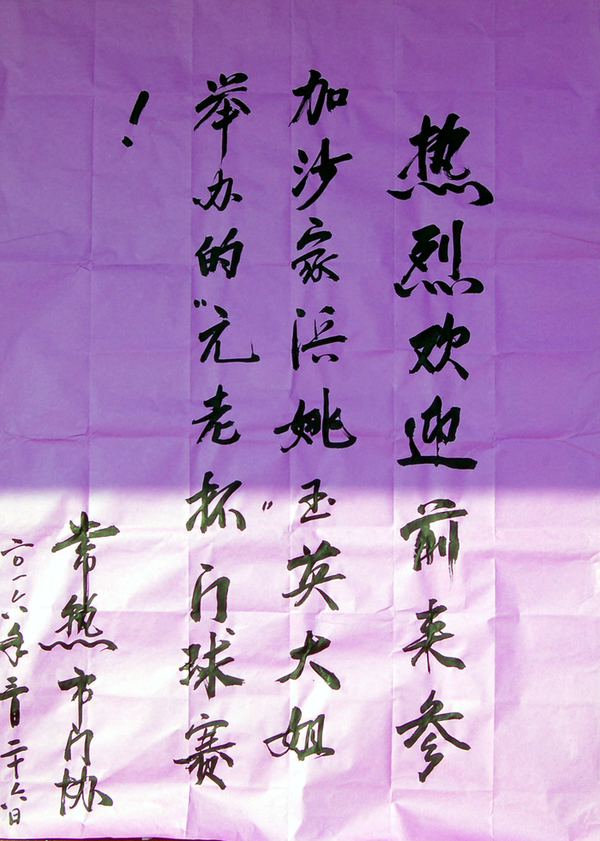 热烈欢迎前来参
加沙家浜姚玉英大姐
举办的"元老杯"门球赛
！
常熟市门协
二〇一六年三月二十六日